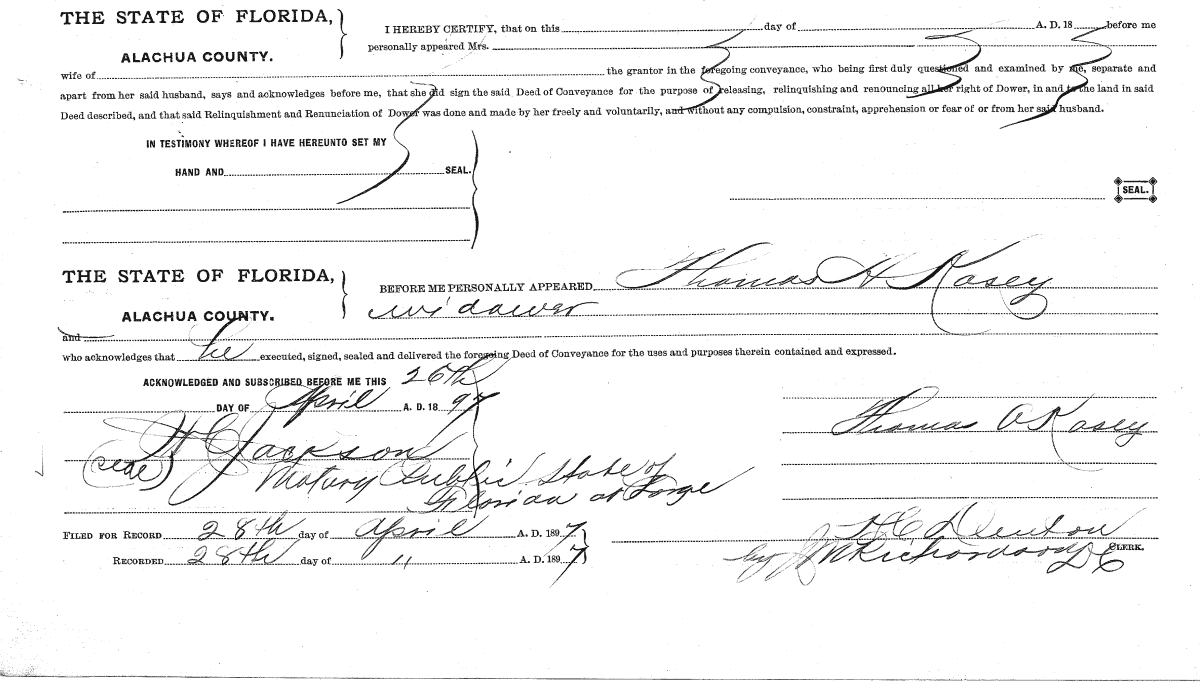 THE STATE OF FLORIDA,
ALACHUA COUNTY.
I HEREBY CERTIFY, that on this day of A. D. 18 before me
personally appeared Mrs.
wife of the grantor in the foregoing conveyance, who being first duly questioned and examined by me, separate and
apart from her said husband, says and acknowledges before me, that she did sign the said Deed of Conveyance for the purpose of releasing, relinquishing and renouncing all her right of Dower, in and to the land in said
Deed described, and that said Relinquishment and Renunciation of Dower was done and made by her freely and voluntarily, and without any compulsion, constraint, apprehension or fear of or from her said husband.
IN TESTIMONY WHEREOF I HAVE HEREUNTO SET MY
HAND AND SEAL.
SEAL.
THE STATE OF FLORIDA,
ALACHUA COUNTY.
BEFORE ME PERSONALLY APPEARED Thomas H Kasey
widower
and
who acknowledges that he executed, signed, sealed and delivered the foregoing Deed of Conveyance for the uses and purposes therein contained and expressed.
ACKNOWLEDGED AND SUBSCRIBED BEFORE ME THIS 26th
DAY OF April A. D. 18 97
Thomas Kasey
Jackson
(seal) Notary Public State of
Florida at Large
FILED FOR RECORD 28th day of April A. D. 1897
H C Denton
CLERK.
RECORDED 28th day of 11 A. D. 1897
by J M Richardson DC